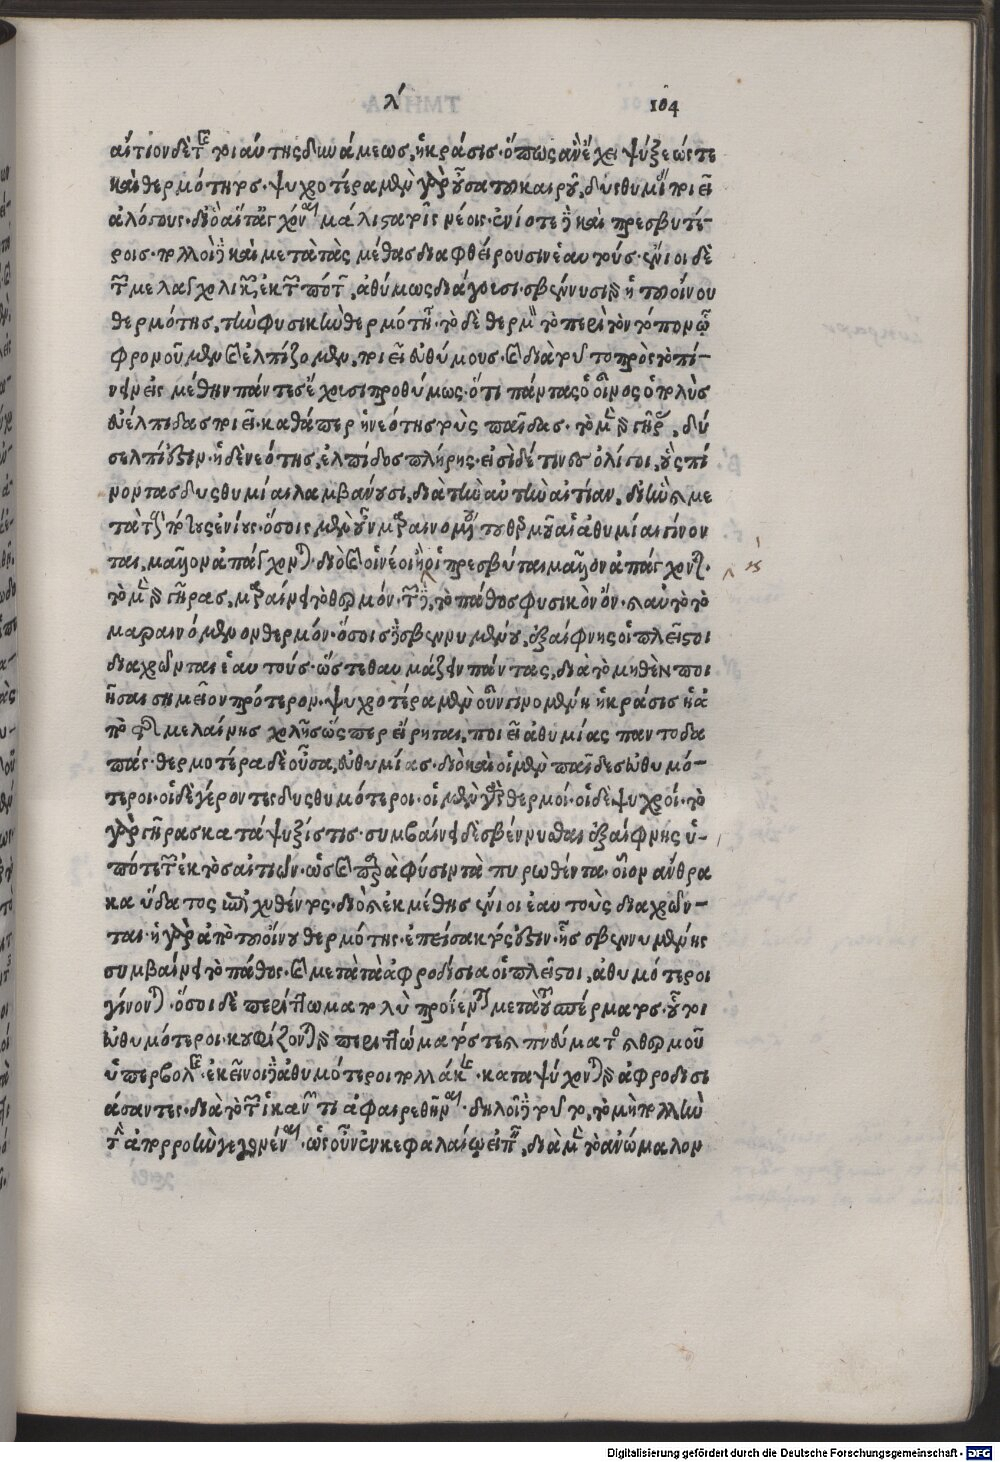 λ´ 104
αἴτιον δὲ τῆς τοιαύτης δυνάμεως, ἡ κράσις· ὅπως ἂν ἔχει ψύξεώς τε
καὶ θερμότητος. ψυχοτέρα μὲν γὰρ οὖσα τοῦ καιροῦ, δυσθυμίας ποιεῖ
ἀλόγους. διὸ αἵ τ᾽ ἀγχόναι μάλιστα τοῖς νέοις. ἐνίοτε δὲ καὶ πρεσβυτέ-
ροις. πολλοὶ δὲ καὶ μετὰ τὰς μέθας διαφθείρουσιν ἑαυτούς. ἔνιοι δὲ
τῶν μελαγχολικῶν, ἐκ τῶν πότων, ἀθύμως διάγουσι. σβέννυσι γὰρ ἡ τοῦ οἴνου
θερμότης, τὴν φυσικὴν θερμότητα. τὸ δὲ θερμὸν τὸ περὶ τὸν τόπον ᾧ
φρονοῦμεν καὶ ἐλπίζομεν, ποιεῖ εὐθύμους. καὶ διὰ τοῦτο πρὸς τὸ πί-
νειν εἰς μέθην πάντες ἔχουσι προθύμως. ὅτι πάντας ὁ οἶνος ὁ πολὺς
εὐέλπιδας ποιεῖ. καθάπερ ἡ νεότης τοὺς παῖδας. τὸ μὲν γὰρ γῆρας, δύ
σελπί ἐστιν. ἡ δὲ νεότης, ἐλπίδος πλήρης. εἰσὶ δέ τινες ὀλίγοι, οὓς πί
νοντας δυσθυμίαι λαμβάνουσι, διὰ τὴν αὐτὴν αἰτίαν, δι᾽ ἣν καὶ με
τὰ τοὺς πότους ἐνίους. ὅσοις μὲν οὖν μαραινομένου τοῦ θερμοῦ αἱ ἀθυμίαι γίνον
ται, μᾶλλον ἀπάγχονται. διὸ καὶ οἱ νέοι ἢ καὶ οἱ πρεσβύται μᾶλλον ἀπάγχονται.
τὸ μὲν γὰρ γῆρας, μαραίνει τὸ θερμόν. τῶν δὲ, τὸ πάθος φυσικὸν ὄν. καὶ αὐτὸ τὸ
μαραινόμενον θερμόν. ὅσοις δὲ σβεννυμένου, ἐξαίφνης οἱ πλεῖστοι
διαχρῶνται ἑαυτούς. ὥστε θαυμάζειν πάντας, διὰ τὸ μηθὲν ποι
ῆσαι σημεῖον πρότερον. ψυχοτέρα μὲν οὖν γινομένη ἡ κράσις ἡ ἀ
πὸ τῆς μελαίνης χολῆς ὥσπερ εἴρηται, ποιεῖ ἀθυμίας παντοδα
πάς. θερμοτέρα δὲ οὖσα, εὐθυμίας. διὸ καὶ οἱ μὲν παῖδες εὐθυμό-
τεροι. οἱ δὲ γέροντες δυσθυμότεροι. οἱ μὲν γὰρ θερμοί. οἱ δὲ ψυχροί. τὸ
γὰρ γῆρας κατάψυξίς τις. συμβαίνει δὲ σβέννυσθαι ἐξαίφνης ὑ-
πό τε τῶν ἐκτὸς αἰτιῶν. ὡς καὶ παρὰ φύσιν τὰ πυρωθέντα. οἷον ἄνθρα
κα ὕδατος ἐπιχυθέντος. διὸ καὶ ἐκ μέθης ἔνιοι ἑαυτοὺς διαχρῶν-
ται. ἡ γὰρ ἀπὸ τοῦ οἴνου θερμότης. ἐπείσακτός ἐστιν. ἧς σβεννυμένης
συμβαίνει τὸ πάθος. καὶ μετὰ τὰ ἀφροδίσια οἱ πλεῖστοι, ἀθυμότεροι
γίνονται. ὅσοι δὲ περίττωμα πολὺ προΐενται μετὰ τοῦ σπέρματος, οὗτοι
εὐθυμότεροι. κουφίζονται γὰρ περιττώματός τε καὶ πνεύματος καὶ θερμοῦ
ὑπερβολῆς. ἐκεῖνοι δὲ ἀθυμότεροι πολλάκις. καταψύχονται γὰρ ἀφροδισι
άσαντες. διὰ τὸ τῶν ἱκανῶν τι ἀφαιρεθῆναι. δηλοῖ δὲ τοῦτο, τὸ μὴ πολλὴν
τὴν ἀπορροὴν γεγονέναι. ὡς οὖν ἐν κεφαλαίῳ εἰπεῖν, διὰ μὲν τὸ ἀνώμαλον
Digitalisierung gefördert durch die Deutsche Forschungsgemeinschaft - DFG